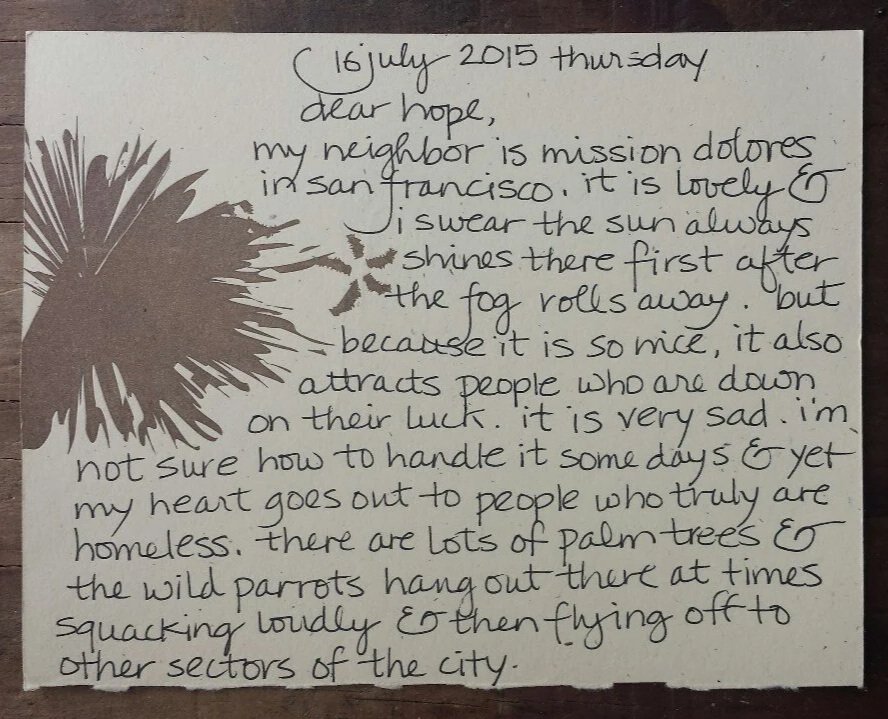 16 july 2015 thursday
dear hope,
my neighbor is mission dolores
in san francisco. it is lovely &
i swear the sun always
shines there first after
the fog rolls away. but
because it is so nice, it also
attracts people who are down
on their luck. it is very sad. i'm
not sure how to handle it some days & yet
my heart goes out to people who truly are
homeless. there are lots of palm trees &
the wild parrots hang out there at times
squacking loudly & then flying off to
other sectors of the city.